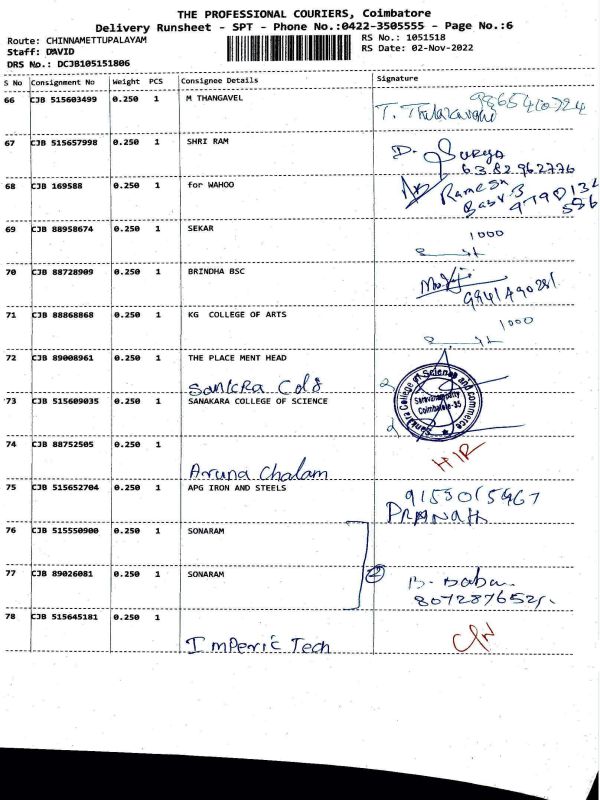 THE PROFESSIONAL COURIERS, Coimbatore
Delivery Runsheet - SPT - Phone No.:0422-3505555 - Page No.:6
Route: CHINNAMETTUPALAYAM RS No.: 1051518
Staff: DAVID RS Date: 02-Nov-2022
DRS No.: DCJB105151806
S No Consignment No Weight PCS Consignee Details Signature
66 CJB 515603499 0.250 1 M THANGAVEL
67 CJB 515657998 0.250 1 SHRI RAM D. Surya
6382962776
68 CJB 169588 0.250 1 for WAHOO Ramesh
69 CJB 88958674 0.250 1 SEKAR 1000
70 CJB 88728909 0.250 1 BRINDHA BSC
71 CJB 88868868 0.250 1 KG COLLEGE OF ARTS 1000
72 CJB 89008961 0.250 1 THE PLACE MENT HEAD
Sankra Col
73 CJB 515609035 0.250 1 SANAKARA COLLEGE OF SCIENCE Sankara College of Science and commerce
Saravanampatty
Coimbatore-35
74 CJB 88752505 0.250 1
Aruna Chalam
75 CJB 515652704 0.250 1 APG IRON AND STEELS
PRANATH
76 CJB 515550900 0.250 1 SONARAM
77 CJB 89026081 0.250 1 SONARAM 2 B. Babu
78 CJB 515645181 0.250 1
Imperic Tech